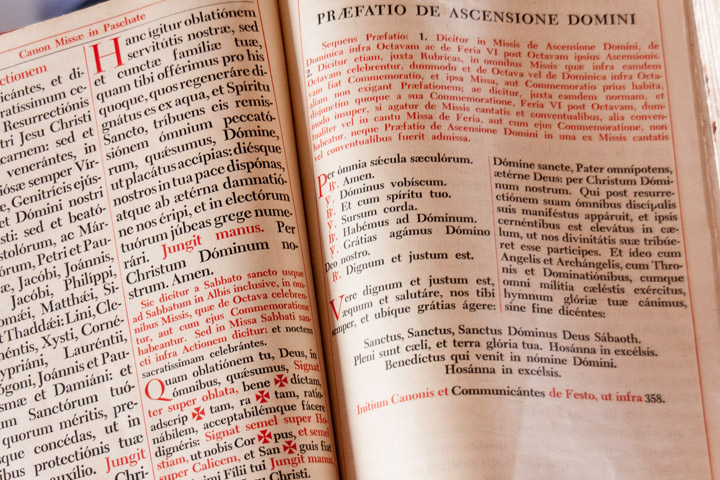 Canon Missæ in Paschate
ctionem
icántes, et di-
ratíssimum ce-
Resurrectiónis
tri Jesu Christi
carnem: sed et
venerántes, in
iósæ semper Vír-
, Genitrícis ejús-
et Dómini nostri
isti: sed et beató-
stolórum, ac Már-
órum, Petri et Pau-
æ, Jacóbi, Joánnis,
Jacóbi, Philíppi,
mǽi, Matthǽi, Si-
t Thaddǽi: Lini, Cle-
éntis, Xysti, Corné-
ypriáni, Lauréntii,
ógoni, Joánnis et Pau-
smæ et Damiáni: et
um Sanctórum tuó-
quorum méritis, pre-
sque concédas, ut in
ibus protectiónis tuæ
auxílio. Jungit
Chri-
Hanc ígitur oblatiónem
servitútis nostræ, sed
et cunctæ famíliæ tuæ,
quam tibi offérimus pro his
quoque, quos regeneráre di-
gnátus es ex aqua, et Spíritu
Sancto, tríbuens eis remis-
siónem ómnium peccató-
rum, quǽsumus, Dómine,
ut placátus accípias: diésque
nostros in tua pace dispónas,
atque ab ætérna damnatió-
ne nos éripi, et in electórum
tuórum júbeas grege nume-
rári. Jungit manus. Per
Christum Dóminum no-
strum. Amen.
Sic dicitur a Sabbato sancto usque
ad Sabbatum in Albis inclusive, in om-
nibus Missis, quæ de Octava celebren-
tur, aut cum ejus Commemoratione
habeantur. Sed in Missa Sabbati san-
cti infra Actionem dicitur: et noctem
sacratíssimam celebrántes.
Quam oblatiónem tu, Deus, in
ómnibus, quǽsumus, Signat
ter super oblata, bene ✠ díctam,
adscríp ✠ tam, ra ✠ tam, ratio-
nábilem, acceptabilémque fácere
dignéris: Signat semel super Ho-
stiam, ut nobis Cor ✠ pus, et semel
super Calicem, et San ✠ guis fiat
mi Fílii tui Jungit manus
Jesu Christi.
PRÆFATIO DE ASCENSIONE DOMINI
Sequens Præfatio: 1. Dicitur in Missis de Ascensione Domini, de
Dominica infra Octavam ac de Feria VI post Octavam ipsius Ascensionis.
2. Dicitur etiam, juxta Rubricas, in omnibus Missis quæ infra eamdem
Octavam celebrentur, dummodo et de Octava vel de Dominica infra Octa-
vam fiat Commemoratio, et ipsa Missa, aut Commemoratio prius habita
aliam non exigant Præfationem; ac dicitur, juxta eamdem normam, et
disjunctim quoque a sua Commemoratione, Feria VI post Octavam, dum-
modo insuper, si agatur de Missis cantatis et conventualibus, alia conven-
tualiter vel in cantu Missa de Feria, aut cum ejus Commemoratione, non
habeatur, neque Præfatio de Ascensione Domini in una ex Missis cantatis
vel conventualibus fuerit admissa.
Per ómnia sǽcula sæculórum.
℟. Amen.
℣. Dóminus vobíscum.
℟. Et cum spíritu tuo.
℣. Sursum corda.
℟. Habémus ad Dóminum.
℣. Grátias agámus Dómino
Deo nostro.
℟. Dignum et justum est.
Vere dignum et justum est,
æquum et salutáre, nos tibi
semper, et ubíque grátias ágere:
Dómine sancte, Pater omnípotens,
ætérne Deus: per Christum Dómi-
num nostrum. Qui post resurre-
ctiónem suam ómnibus discípulis
suis maniféstus appáruit, et ipsis
cernéntibus est elevátus in cæ-
lum, ut nos divinitátis suæ tribúe-
ret esse partícipes. Et ídeo cum
Angelis et Archángelis, cum Thro-
nis et Dominatiónibus, cumque
omni milítia cæléstis exércitus,
hymnum glóriæ tuæ cánimus,
sine fine dicéntes:
Sanctus, Sanctus, Sanctus Dóminus Deus Sábaoth.
Pleni sunt cæli, et terra glória tua. Hosánna in excélsis.
Benedíctus qui venit in nómine Dómini.
Hosánna in excélsis.
Initium Canonis et Communicántes de Festo, ut infra 358.